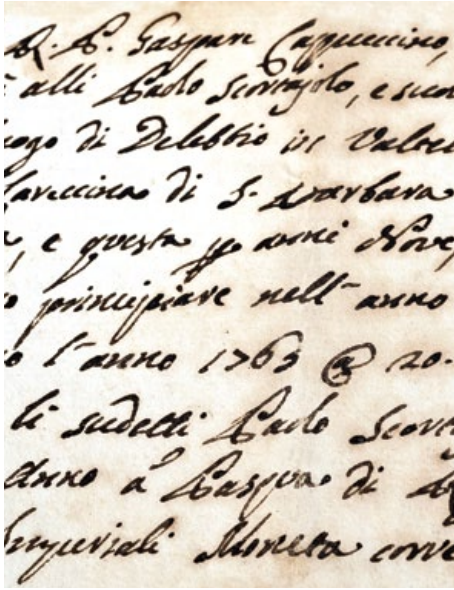 R. P. Gaspare Cappuccino,
alli Paolo Scortajolo, e suoi
luogo di Delebbio in Valtel
di S. Barbara
, e questa p anni Nove,
principiare nell' anno
l' anno 1763 @ 20.
li sudetti Paolo Scort
Anno a Pasqua di
Imperiali Moneta corre